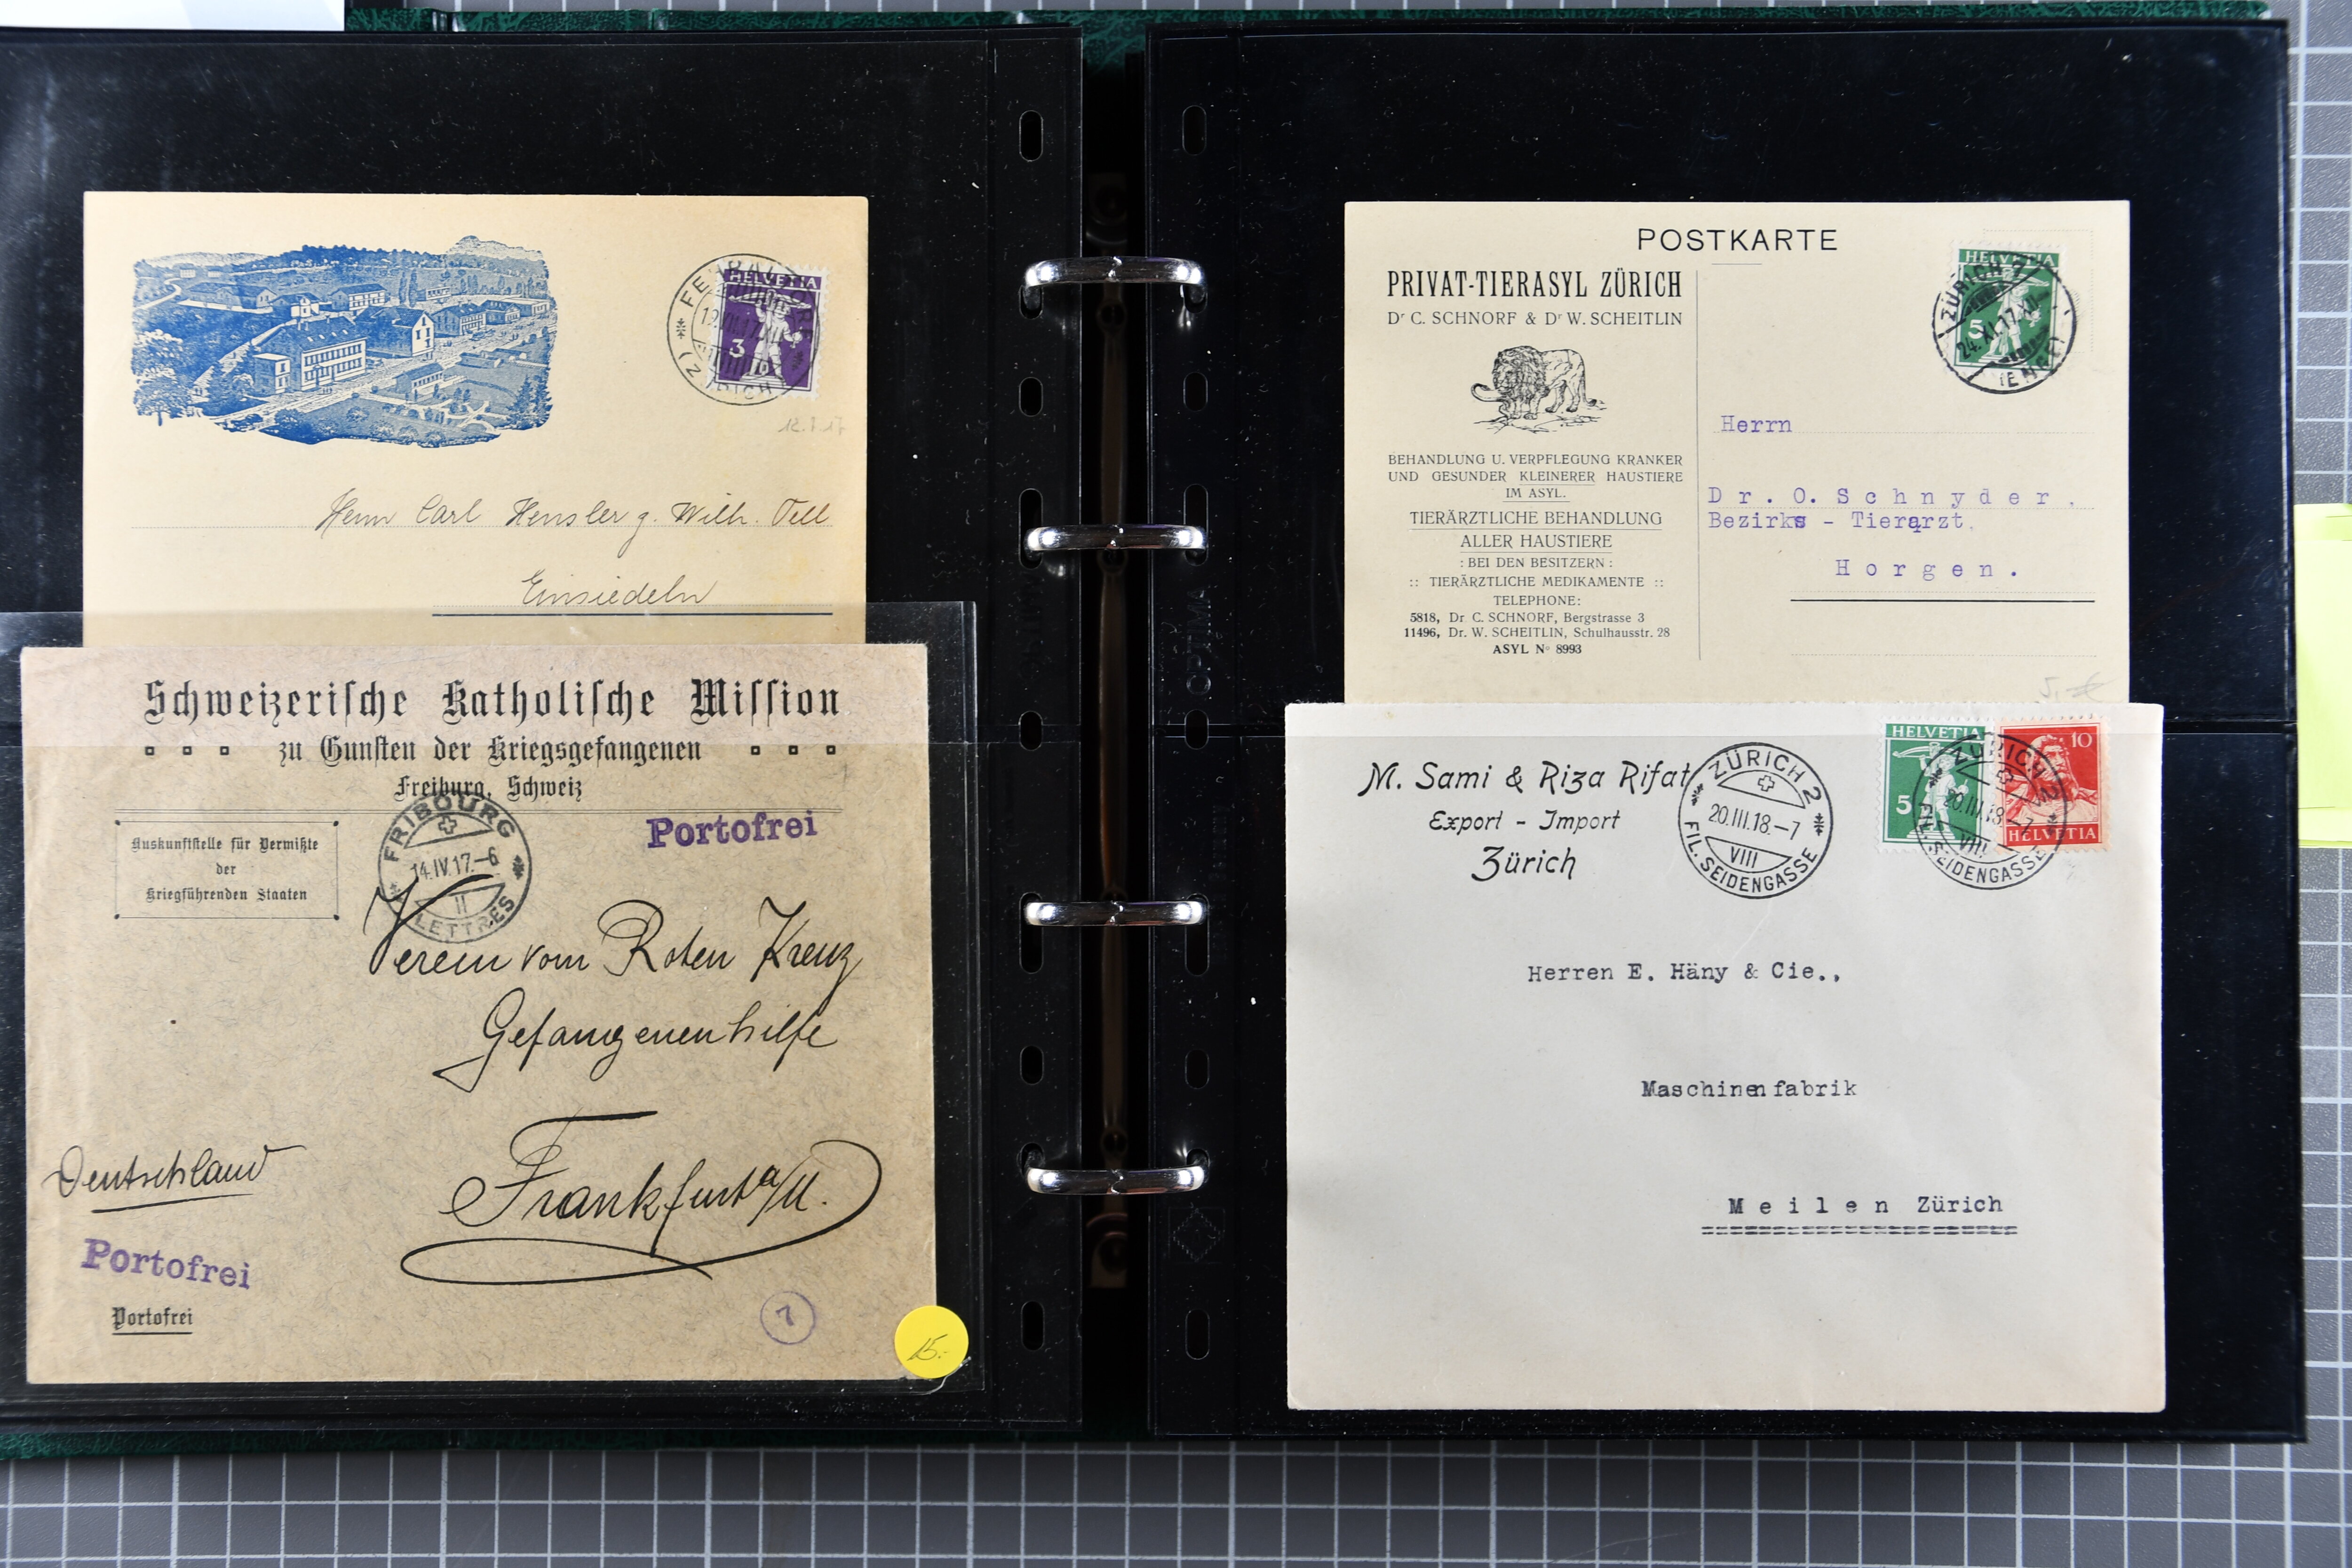 HELVETIA
3
ZÜRICH
Herrn Carl Hensler z. Wilh. Tell
Einsiedeln
Schweizerische Katholische Mission
zu Gunsten der Kriegsgefangenen
Freiburg, Schweiz
Auskunftstelle für Vermißte
der
Kriegführenden Staaten
FRIBOURG
14.IV.17.-6
II
LETTRES
Portofrei
Verein vom Roten Kreuz
Gefangenenhilfe
Frankfurt a/M.
Deutschland
Portofrei
Portofrei
7
15.-
OPTIMA
POSTKARTE
PRIVAT-TIERASYL ZÜRICH
Dr C. SCHNORF & Dr W. SCHEITLIN
BEHANDLUNG U. VERPFLEGUNG KRANKER
UND GESUNDER KLEINERER HAUSTIERE
IM ASYL.
TIERÄRZTLICHE BEHANDLUNG
ALLER HAUSTIERE
: BEI DEN BESITZERN :
:: TIERÄRZTLICHE MEDIKAMENTE ::
TELEPHONE:
5818, Dr. C. SCHNORF, Bergstrasse 3
11496, Dr. W. SCHEITLIN, Schulhausstr. 28
ASYL No 8993
HELVETIA
5
ZÜRICH 7
24.XI.17.XII-
Herrn
Dr. O. Schnyder,
Bezirks - Tierarzt,
Horgen.
M. Sami & Riza Rifat
Export - Import
Zürich
ZÜRICH 2
20.III.18.-7
VIII
FIL. SEIDENGASSE
HELVETIA
5
10
HELVETIA
ZÜRICH 2
20.III.18.-7
VIII
FIL. SEIDENGASSE
Herren E. Häny & Cie.,
Maschinenfabrik
Meilen Zürich